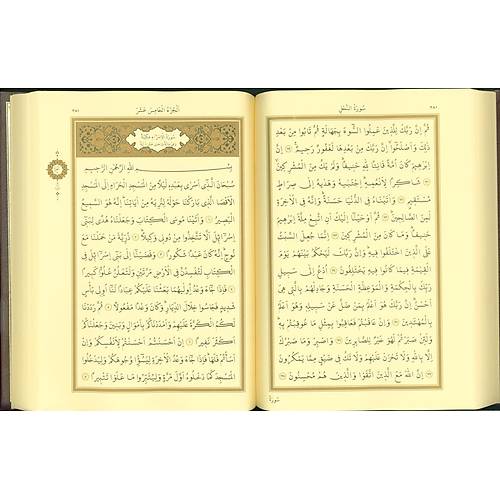 سُورَةُ النَّحْلِ
ثُمَّ اِنَّ رَبَّكَ لِلَّذِينَ عَمِلُوا السُّوءَ بِجَهَالَةٍ ثُمَّ تَابُوا مِنْ بَعْدِ
ذٰلِكَ وَاَصْلَحُوا اِنَّ رَبَّكَ مِنْ بَعْدِهَا لَغَفُورٌ رَحِيمٌ اِنَّ
اِبْرٰهِيمَ كَانَ اُمَّةً قَانِتًا لِلّٰهِ حَنِيفًا وَلَمْ يَكُ مِنَ الْمُشْرِكِينَ
شَاكِرًا لِاَنْعُمِهِ اِجْتَبٰيهُ وَهَدٰيهُ اِلٰى صِرَاطٍ
مُسْتَقِيمٍ وَاٰتَيْنَاهُ فِي الدُّنْيَا حَسَنَةً وَاِنَّهُ فِي الْاٰخِرَةِ
لَمِنَ الصَّالِحِينَ ثُمَّ اَوْحَيْنَا اِلَيْكَ اَنِ اتَّبِعْ مِلَّةَ اِبْرٰهِيمَ
حَنِيفًا وَمَا كَانَ مِنَ الْمُشْرِكِينَ اِنَّمَا جُعِلَ السَّبْتُ
عَلَى الَّذِينَ اخْتَلَفُوا فِيهِ وَاِنَّ رَبَّكَ لَيَحْكُمُ بَيْنَهُمْ يَوْمَ
الْقِيٰمَةِ فِيمَا كَانُوا فِيهِ يَخْتَلِفُونَ اُدْعُ اِلٰى سَبِيلِ
رَبِّكَ بِالْحِكْمَةِ وَالْمَوْعِظَةِ الْحَسَنَةِ وَجَادِلْهُمْ بِالَّتِي هِيَ
اَحْسَنُ اِنَّ رَبَّكَ هُوَ اَعْلَمُ بِمَنْ ضَلَّ عَنْ سَبِيلِهِ وَهُوَ اَعْلَمُ
بِالْمُهْتَدِينَ وَاِنْ عَاقَبْتُمْ فَعَاقِبُوا بِمِثْلِ مَا عُوقِبْتُمْ بِهِ
وَلَئِنْ صَبَرْتُمْ لَهُوَ خَيْرٌ لِلصَّابِرِينَ وَاصْبِرْ وَمَا صَبْرُكَ
اِلَّا بِاللّٰهِ وَلَا تَحْزَنْ عَلَيْهِمْ وَلَا تَكُ فِي ضَيْقٍ مِمَّا يَمْكُرُونَ
اِنَّ اللّٰهَ مَعَ الَّذِينَ اتَّقَوْا وَالَّذِينَ هُمْ مُحْسِنُونَ
سُورَةُ
اَلْجُزْءُ الْخَامِسَ عَشَرَ
بِسْمِ اللّٰهِ الرَّحْمٰنِ الرَّحِيمِ
سُبْحَانَ الَّذِي اَسْرٰى بِعَبْدِهِ لَيْلًا مِنَ الْمَسْجِدِ الْحَرَامِ اِلَى الْمَسْجِدِ
الْاَقْصَا الَّذِي بَارَكْنَا حَوْلَهُ لِنُرِيَهُ مِنْ اٰيَاتِنَا اِنَّهُ هُوَ السَّمِيعُ
الْبَصِيرُ وَاٰتَيْنَا مُوسَى الْكِتَابَ وَجَعَلْنَاهُ هُدًى لِبَنِي
اِسْرَائِلَ اَلَّا تَتَّخِذُوا مِنْ دُونِي وَكِيلًا ذُرِّيَّةَ مَنْ حَمَلْنَا مَعَ
نُوحٍ اِنَّهُ كَانَ عَبْدًا شَكُورًا وَقَضَيْنَا اِلٰى بَنِي اِسْرَائِلَ فِي
الْكِتَابِ لَتُفْسِدُنَّ فِي الْاَرْضِ مَرَّتَيْنِ وَلَتَعْلُنَّ عُلُوًّا كَبِيرًا
فَاِذَا جَاءَ وَعْدُ اُولٰيهُمَا بَعَثْنَا عَلَيْكُمْ عِبَادًا لَنَا اُولِي بَأْسٍ
شَدِيدٍ فَجَاسُوا خِلَالَ الدِّيَارِ وَكَانَ وَعْدًا مَفْعُولًا ثُمَّ رَدَدْنَا
لَكُمُ الْكَرَّةَ عَلَيْهِمْ وَاَمْدَدْنَاكُمْ بِاَمْوَالٍ وَبَنِينَ وَجَعَلْنَاكُمْ
اَكْثَرَ نَفِيرًا اِنْ اَحْسَنْتُمْ اَحْسَنْتُمْ لِاَنْفُسِكُمْ وَاِنْ
اَسَأْتُمْ فَلَهَا فَاِذَا جَاءَ وَعْدُ الْاٰخِرَةِ لِيَسُٓؤُا وُجُوهَكُمْ وَلِيَدْخُلُوا
الْمَسْجِدَ كَمَا دَخَلُوهُ اَوَّلَ مَرَّةٍ وَلِيُتَبِّرُوا مَا عَلَوْا تَتْبِيرًا